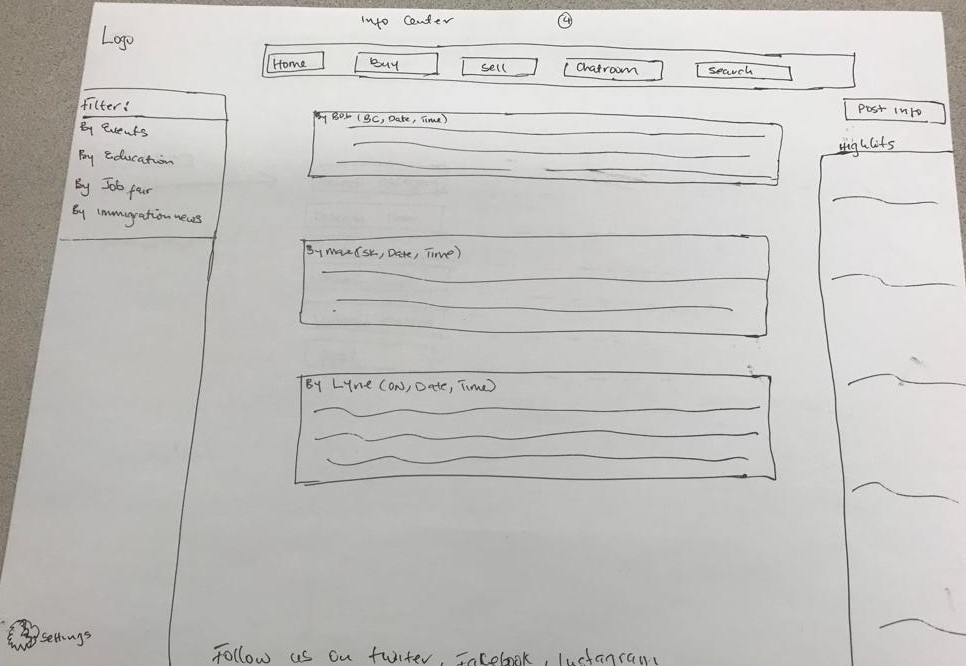 Info Center 4
Logo
Home Buy Sell Chatroom Search
Filter:
By Events
By Education
By Job fair
By immigration news
By Bob (BC, Date, Time)
By max (SK, Date, Time)
By Lyne (ON, Date, Time)
Post info
Highlits
settings
Follow us on twiter, Facebook, Instagram